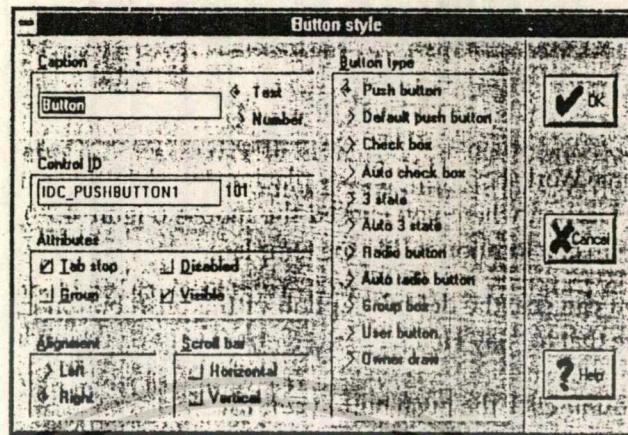 Button style
Caption
Button
Text
Number
Control ID
IDC_PUSHBUTTON1 101
Attributes
Tab stop Disabled
Group Visible
Alignment
Left
Right
Scroll bar
Horizontal
Vertical
Button type
Push button
Default push button
Check box
Auto check box
3 state
Auto 3 state
Radio button
Auto radio button
Group box
User button
Owner draw
OK
Cancel
Help